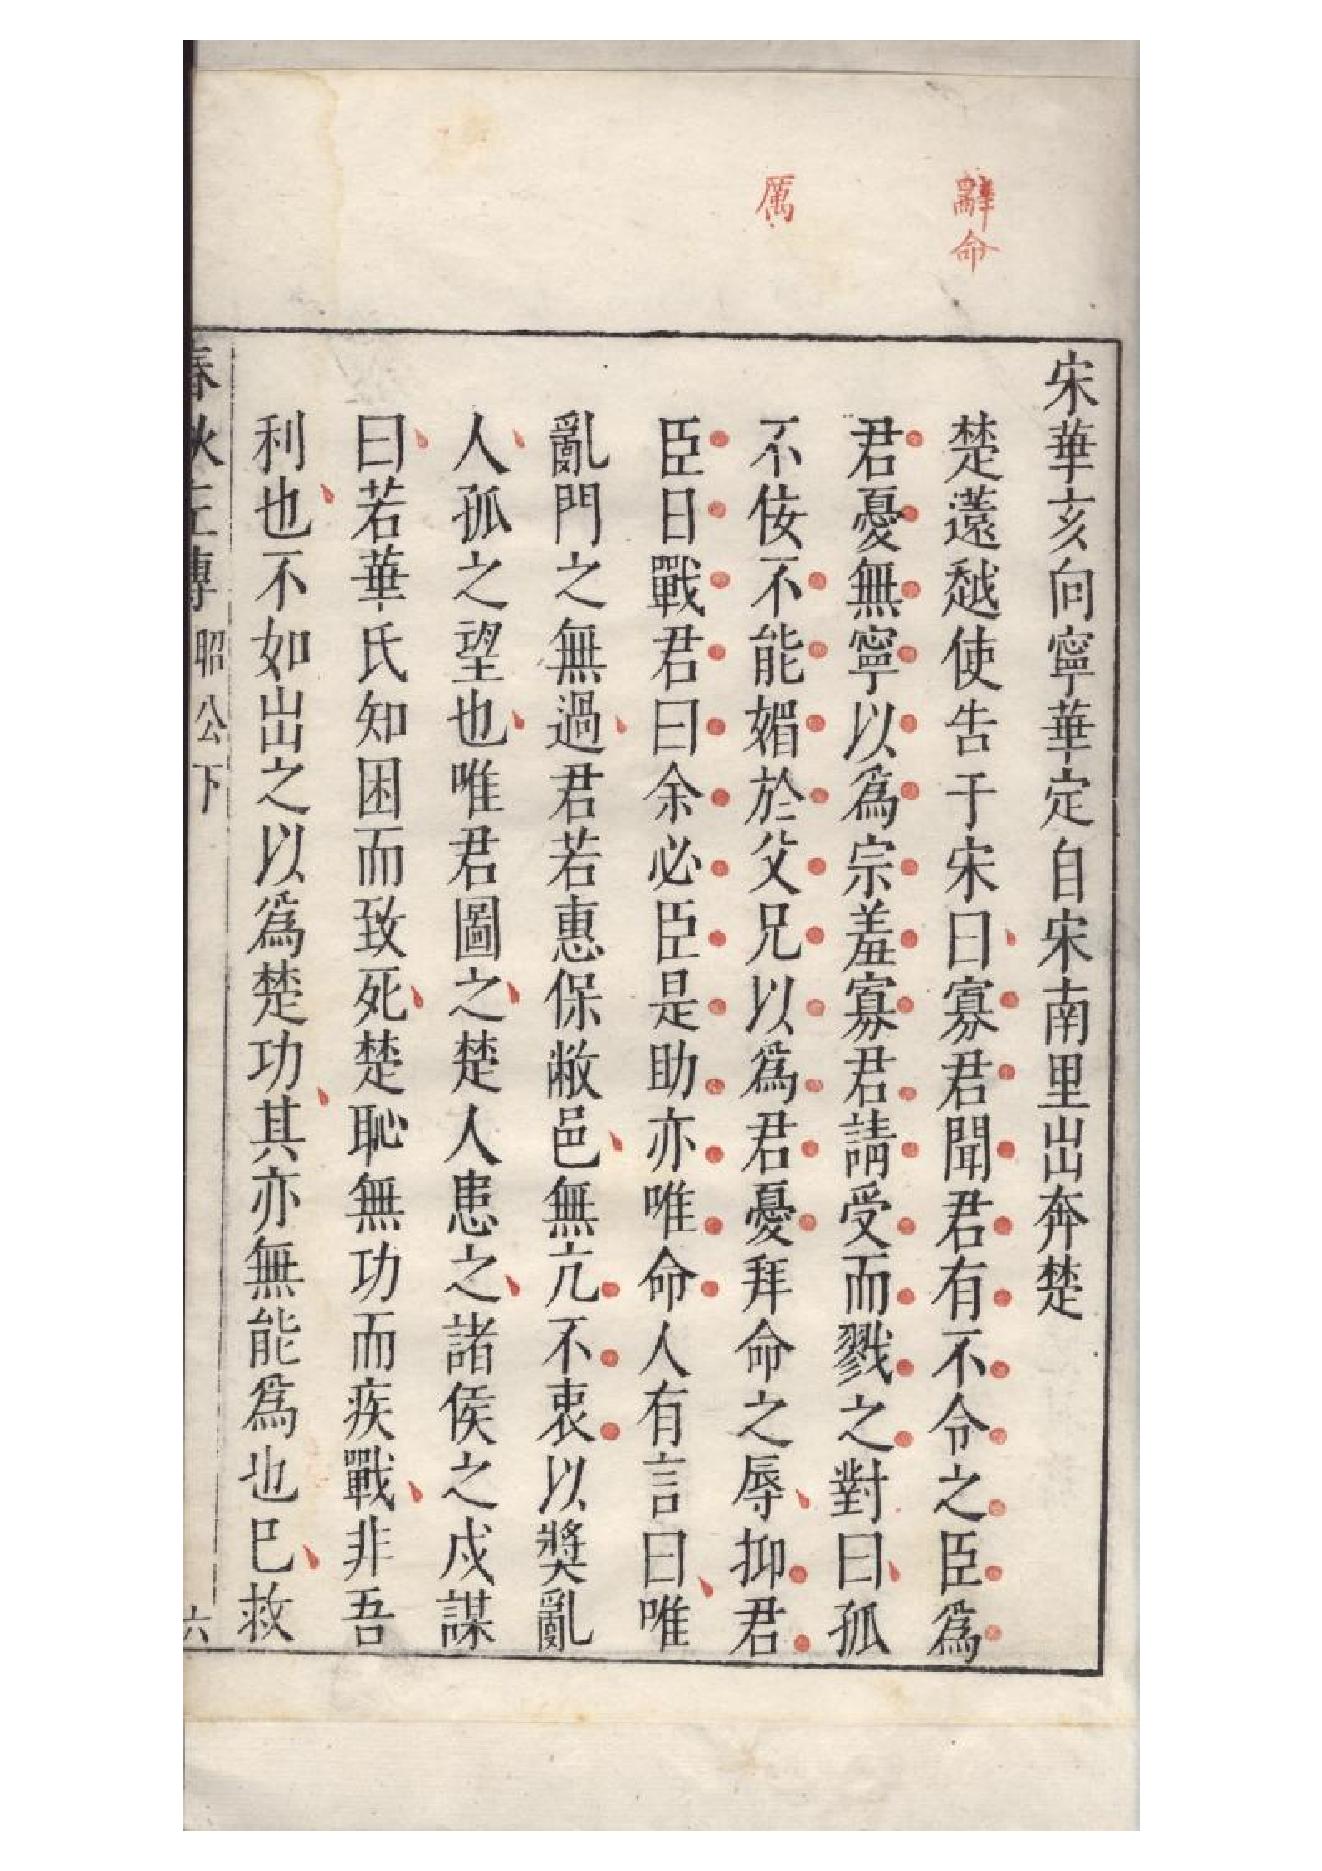 辭命
厲
宋華亥向寧華定自宋南里出奔楚
楚薳越使告于宋曰寡君聞君有不令之臣爲
君憂無寧以爲宗羞寡君請受而戮之對曰孤
不佞不能媚於父兄以爲君憂拜命之辱抑君
臣日戰君曰余必臣是助亦唯命人有言曰唯
亂門之無過君若惠保敝邑無亢不衷以獎亂
人孤之望也唯君圖之楚人患之諸侯之戍謀
曰若華氏知困而致死楚恥無功而疾戰非吾
利也不如出之以爲楚功其亦無能爲也巳救
春秋左傳 昭公下 六